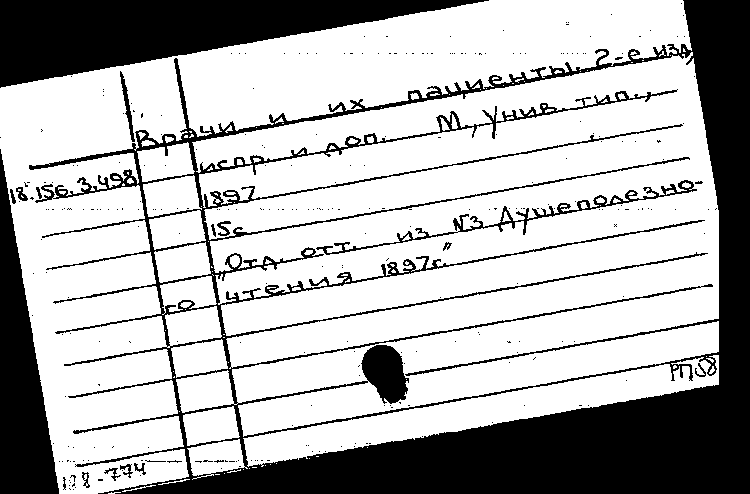 Врачи и их пациенты. 2-е изд.,
испр. и доп. М., Унив. тип.,
18.156.3.498
1897
15с
„Отд. отт. из №3 Душеполезно-
го чтения 1897г."
РП58
118-774